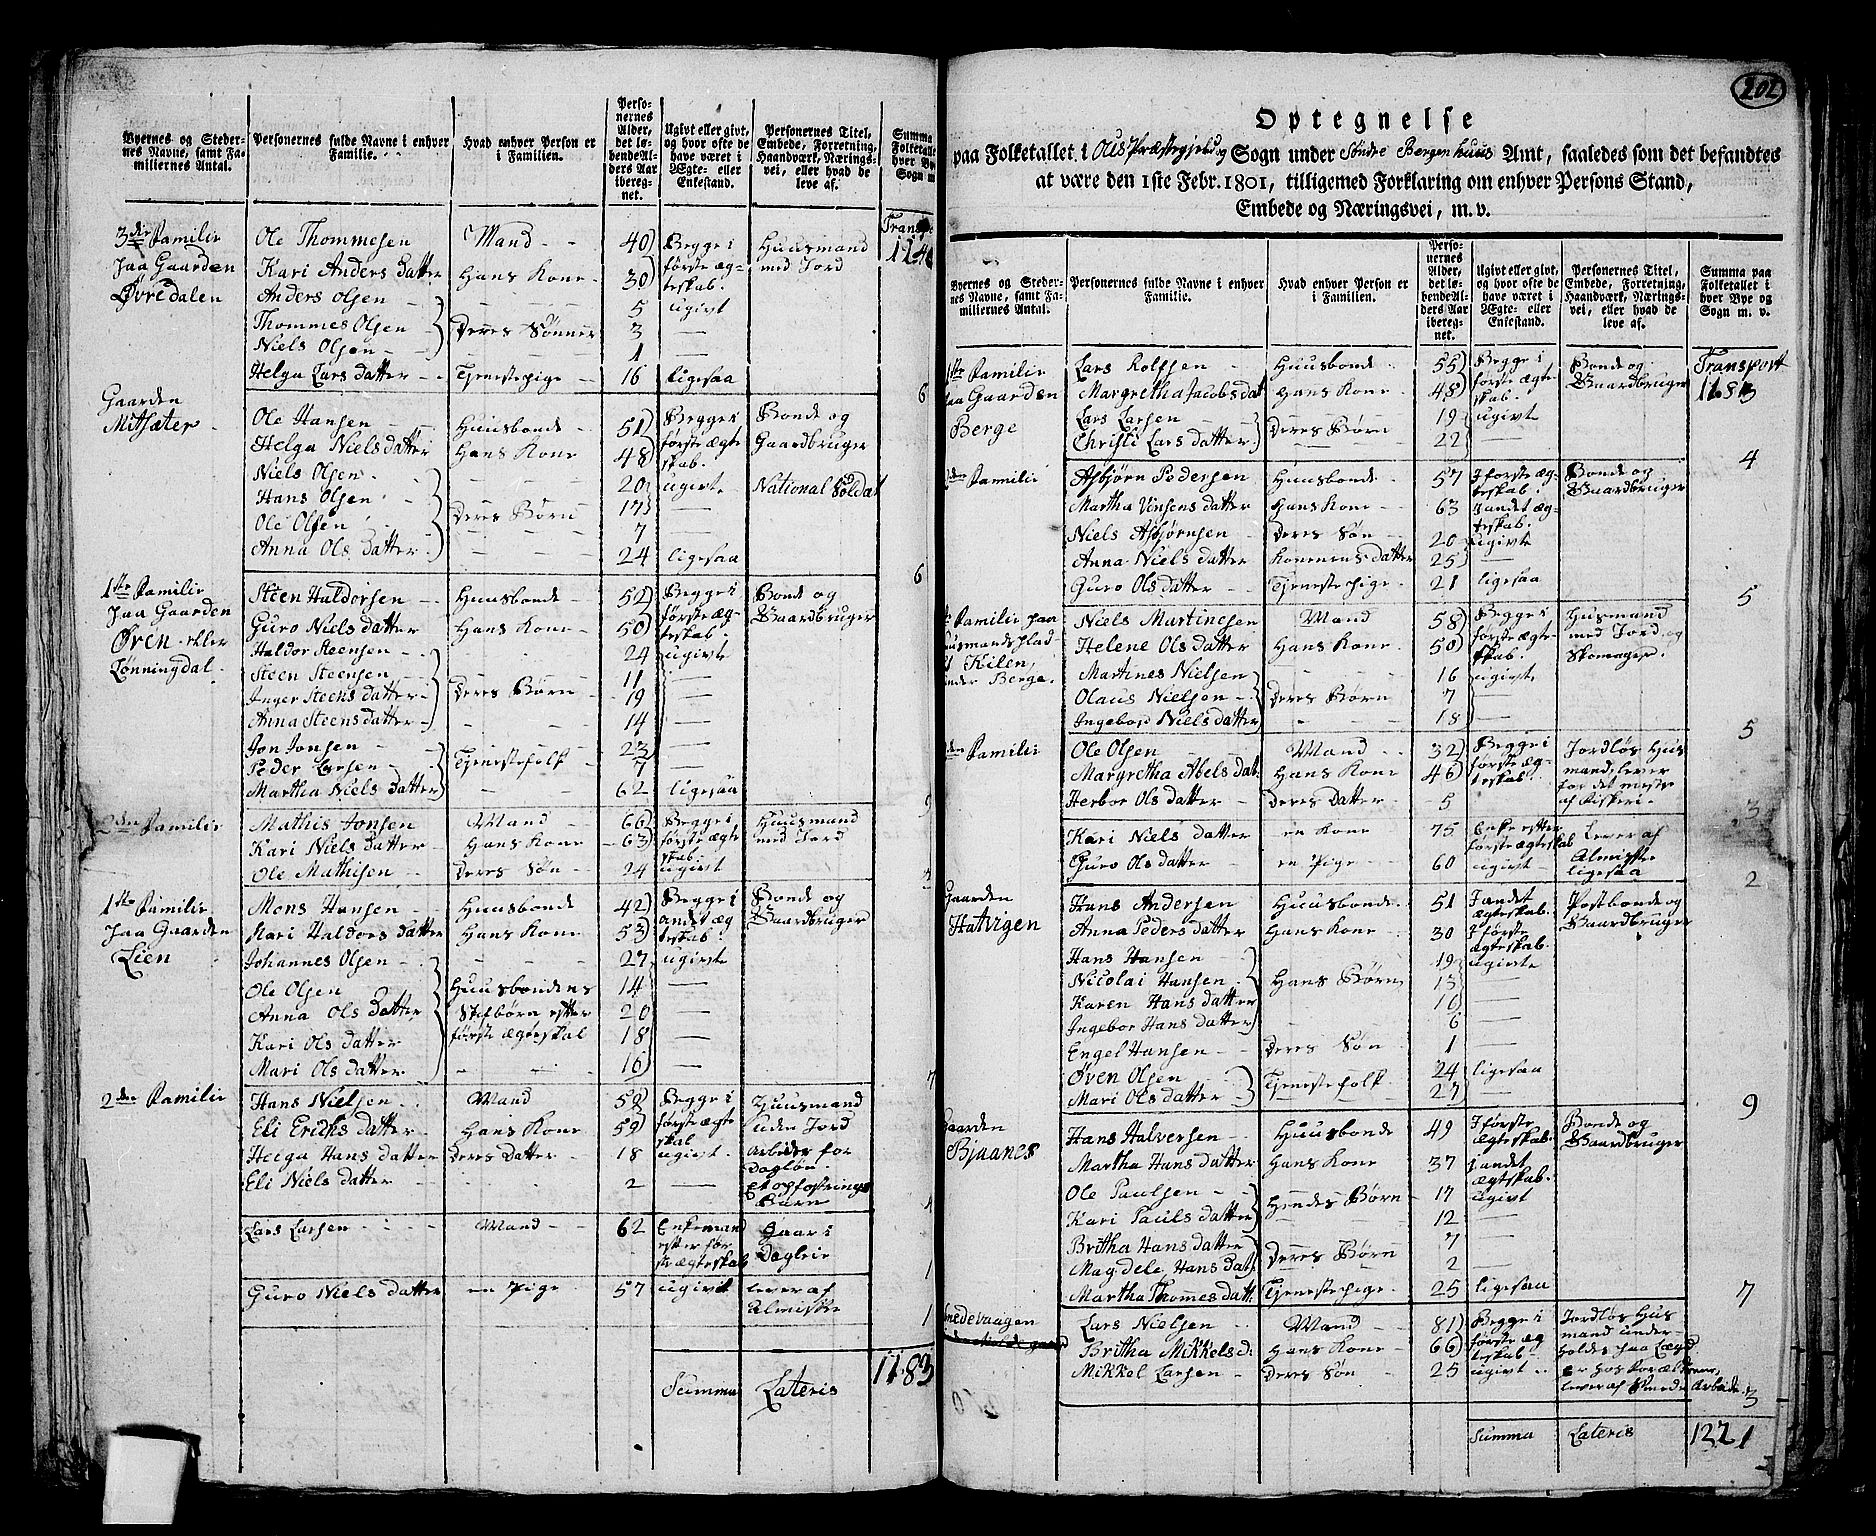 Byernes og Steder-
nes Navne, samt Fa-
miliernes Antal.
Personernes fulde Navne i enhver
Familie.
Hvad enhver Person er
i Familien.
Perso-
nernes
Alder,
det lø-
bende Al-
ders Aar
iberegnet.
Ugivt eller givt,
og hvor ofte de
have været i
Ægte- eller
Enkestand.
Personernes Titel,
Embede, Forretning,
Haandværk, Nærings-
vei, eller hvad de
leve af.
Summa
Folketallet
hver By
Sogn m
3die Familie Ole Thommesen Mand 40 Begge i Huusmand
paa Gaarden Kari Anders Datter Hans Kone 30 første æg- med Jord
Øvredalen Anders Olsen 5 teskab. ugivt
Thommes Olsen Deres Sønner 3 —
Niels Olsen 1 —
Helga Lars datter Tjenestepige 16 ligesaa 6
Gaarden
Mitsæter Ole Hansen Huusbonde 51 Begge i Bonde og
Helga Nielsdatter Hans Kone 48 første ægte Gaardbruger
skab.
Niels Olsen 20 ugivte National Soldat
Hans Olsen 17 —
Ole Olsen Deres Børn 7 —
Anna Ols Datter 24 ligesaa 6
1ste Familie Steen Haldorsen Huusbonde 52 Begge i Bonde og
paa Gaarden Guro Niels datter Hans Kone 50 første æg- Gaardbruger
Øven eller Haldor Steensen 24 teskab. ugivte
Lønningdal Steen Steensen 11 —
Inger Steens datter Deres Børn 19 —
Anna Steensdatter 14 —
Jon Jonsen 23 —
Peder Larsen Tjenestefolk 7 —
Martha Niels Datter 62 ligesaa 9
2den Familie Mathis Jonsen Mand 66 Begge i Huusmand
Kari Niels Datter Hans Kone 63 første ægte med Jord
skab
Ole Mathisen Deres Søn 24 ugivt
1ste Familie Mons Hansen Huusbonde 42 Begge i Bonde og
paa Gaarden Mari Haldors datter Hans Kone 53 andet æg Gaardbruger
Lien Johannes Olsen 27 teskab. ugivte
Ole Olsen Huusbondens 14 —
Anna Ols Datter Stifbørn efter 20 —
Kari Ols datter første ægteskab 18 —
Mari Olsdatter 16 — 7
2den Familie Hans Nielsen Mand 58 Begge i Huusmand
Eli Erichs datter Hans Kone 59 første ægte uden Jord
skab
Helga Hans datter Deres Datter 18 ugivt arbeider for
Dagløn
Eli Niels datter 2 — Et opfostrings
Barn 4
Lars Larsen Mand 62 Enkemand Gaar i
efter før Dagleie
ste ægteskab 1
Guro Niels datter en Pige 57 ugivt lever af
Almisse 1
Summa Lateris 1183
202
Optegnelse
paa Folketallet i Ous Præstegjeld og Sogn under Søndre Bergenhuus Amt, saaledes som det befandtes
at være den 1ste Febr. 1801, tilligemed Forklaring om enhver Persons Stand,
Embede og Næringsvei, m. v.
Byernes og Steder-
nes Navne, samt Fa-
miliernes Antal.
Personernes fulde Navne i enhver
Familie.
Hvad enhver Person er
i Familien.
Perso-
nernes
Alder,
det lø-
bende Al-
ders Aar
iberegnet.
Ugivt eller givt,
og hvor ofte de
have været i
Ægte- eller
Enkestand.
Personernes Titel,
Embede, Forretning,
Haandværk, Nærings-
vei, eller hvad de
leve af.
Summa paa
Folketallet i
hver Bye og
Sogn m. v.
1ste Familie Lars Rolfsen Huusbonde 55 Begge i Bonde og Transport
paa Gaarden Margretha Jacobs dat Hans Kone 48 første ægte Gaardbruger 1183
skab.
Berge Lars Larsen Deres Børn 19 ugivt
Christi Lars datter 22 — 4
2den Familie Asbjørn Pedersen Huusbonde 57 I første æg- Bonde og
teskab. Gaardbruger
Martha Vinsens datter Hans Kone 63 I andet æg-
teskab.
Niels Asbjørnsen Deres Søn 20 ugivte
Anna Niels datter Konenens datter 25 —
Guro Ols datter Tjeneste pige 21 ligesaa 5
Familie paa Niels Martinesen Mand 58 Begge i Husmand
Husmandsplad Helene Ols datter Hans Kone 50 første ægte- med Jord og
Kilen, skab. Skomager.
under Berge. Martines Nielsen 16 ugivte
Olaus Nielsen Deres Børn 7 —
Ingebor Niels datter 18 — 5
Familie Ole Olsen Mand 32 Begge i Jordløs Hus
Margretha Abels dat Hans Kone 46 første æg- mand, lever
teskab. for det meste
Herbor Ols datter Deres Datter 5 af Fiskeri. 3
Kari Niels datter en Kone 75 Enke efter Lever af
første ægteskab Almisse
Guro Ols datter en Pige 60 ugivt ligesaa 2
Gaarden Hans Andersen Huusbonde 51 I andet Postbonde og
Hatvigen ægteskab. Gaardbruger
Anna Peders datter Hans Kone 30 I første
ægteskab.
Hans Hansen 19 ugivte
Nicolai Hansen Hans Børn 13 —
Karen Hans datter 10 —
Ingebor Hans datter 6 —
Engel Hansen Deres Søn 1 —
Øven Olsen Tjenestefolk 24 ligesaa
Mari Ols datter 27 — 9
Gaarden Hans Halversen Huusbonde 49 I første Bonde og
Bjaanes ægteskab. Gaardbruger
Martha Hans datter Hans Kone 37 I andet
ægteskab.
Ole Paulsen Hendes Børn 17 ugivt
Kari Pauls datter 12 —
Britha Hans datter Deres Børn 7 —
Magdele Hans dat 2 —
Martha Thommes datt Tjenestepige 25 ligesaa 7
Smedevaagen Lars Nielsen Mand 81 Begge i Jordløs Hus
Britha Mikkels d. Hans Kone 66 første æg mand under-
teskab holdes paa Lægd
Mikkel Larsen Deres Søn 25 ugivt er hos Foræl drene,
lever af Smede Arbeide. 3
Summa Lateris 1221